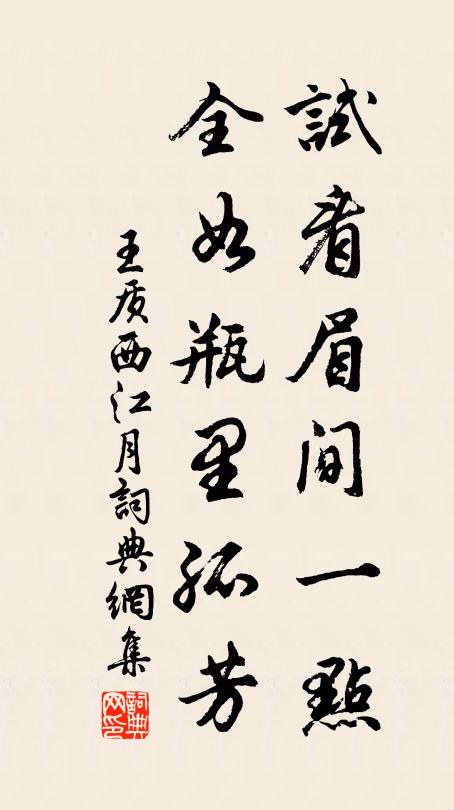 試看眉間一點
全如瓶里孤芳
王质西江月詞典網集
詞典网印